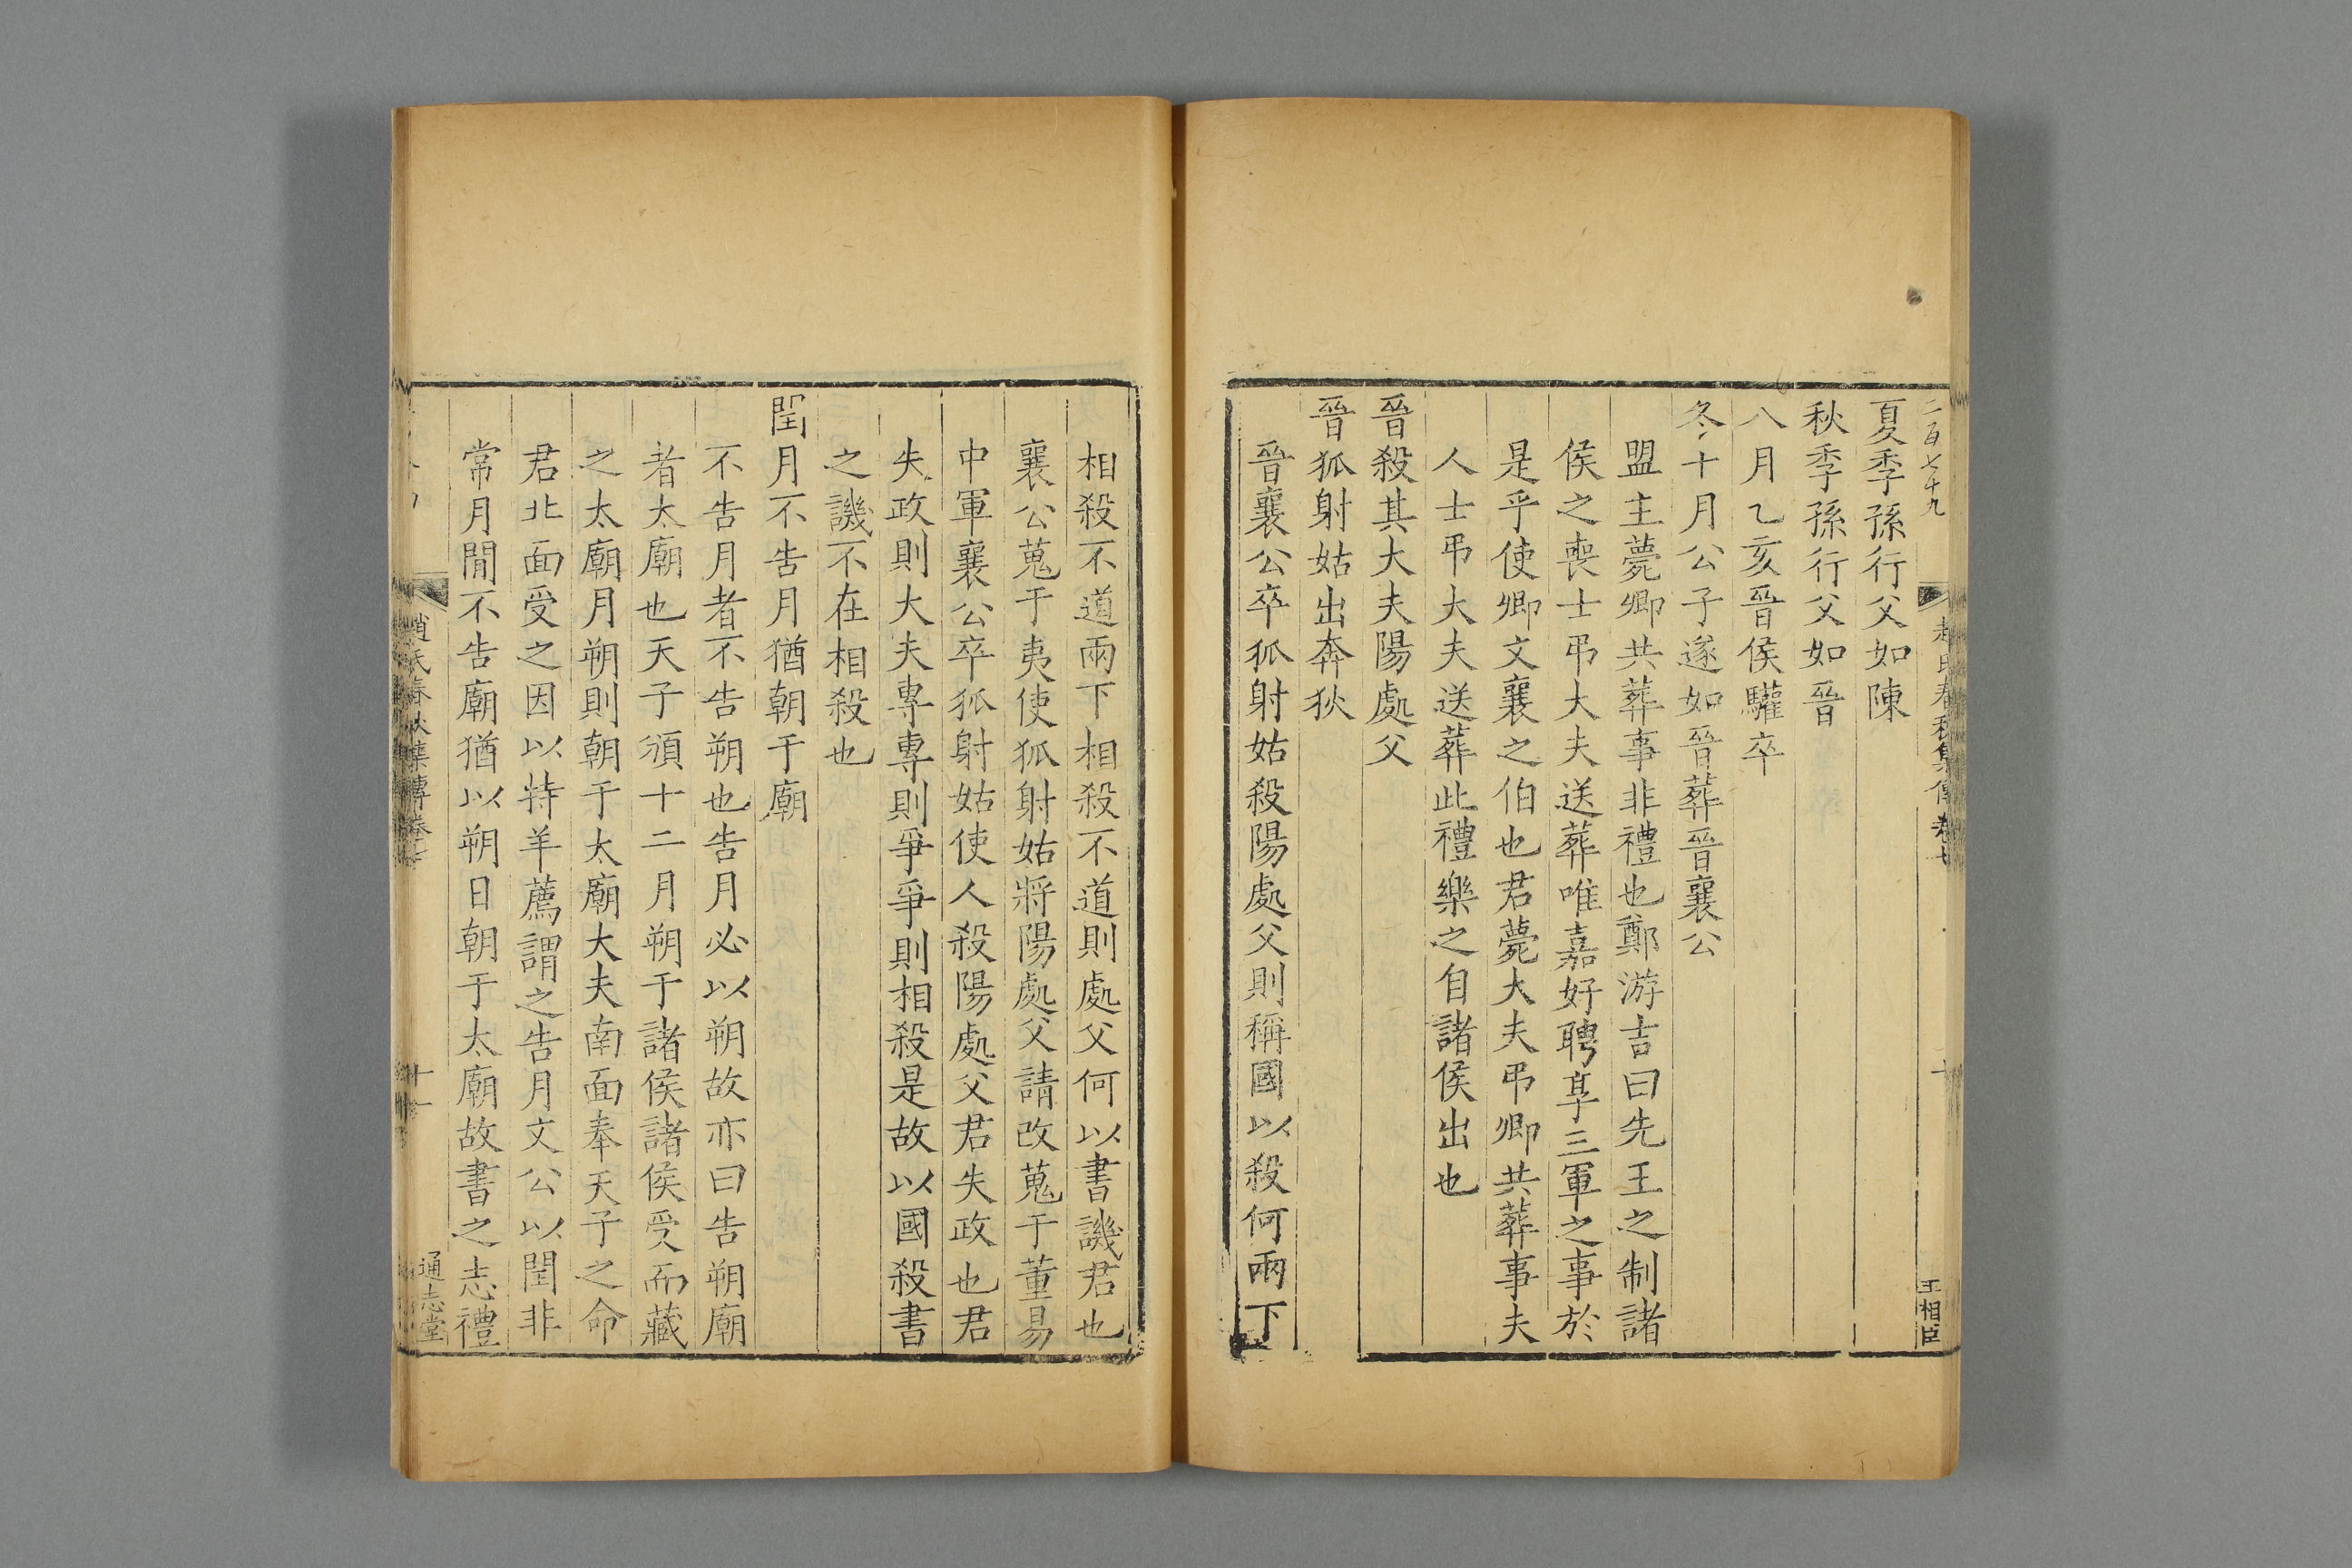 二百七十九
趙氏春秋集傳 卷七
十
王相臣
夏季孫行父如陳
秋季孫行父如晉
八月乙亥晉侯驩卒
冬十月公子遂如晉葬晉襄公
盟主薨卿共葬事非禮也鄭游吉曰先王之制諸
侯之喪士弔大夫送葬唯嘉好聘享三軍之事於
是乎使卿文襄之伯也君薨大夫弔卿共葬事夫
人士弔大夫送葬此禮樂之自諸侯出也
晉殺其大夫陽處父
晉狐射姑出奔狄
晉襄公卒狐射姑殺陽處父則稱國以殺何兩下
相殺不道兩下相殺不道則處父何以書譏君也
襄公蒐于夷使狐射姑將陽處父請改蒐于董易
中軍襄公卒狐射姑使人殺陽處父君失政也君
失政則大夫專專則爭爭則相殺是故以國殺書
之譏不在相殺也
閏月不告月猶朝于廟
不告月者不告朔也告月必以朔故亦曰告朔廟
者太廟也天子頒十二月朔于諸侯諸侯受而藏
之太廟月朔則朝于太廟大夫南面奉天子之命
君北面受之因以特羊薦謂之告月文公以閏非
常月閒不告廟猶以朔日朝于太廟故書之志禮
趙氏春秋集傳卷七
十一
通志堂